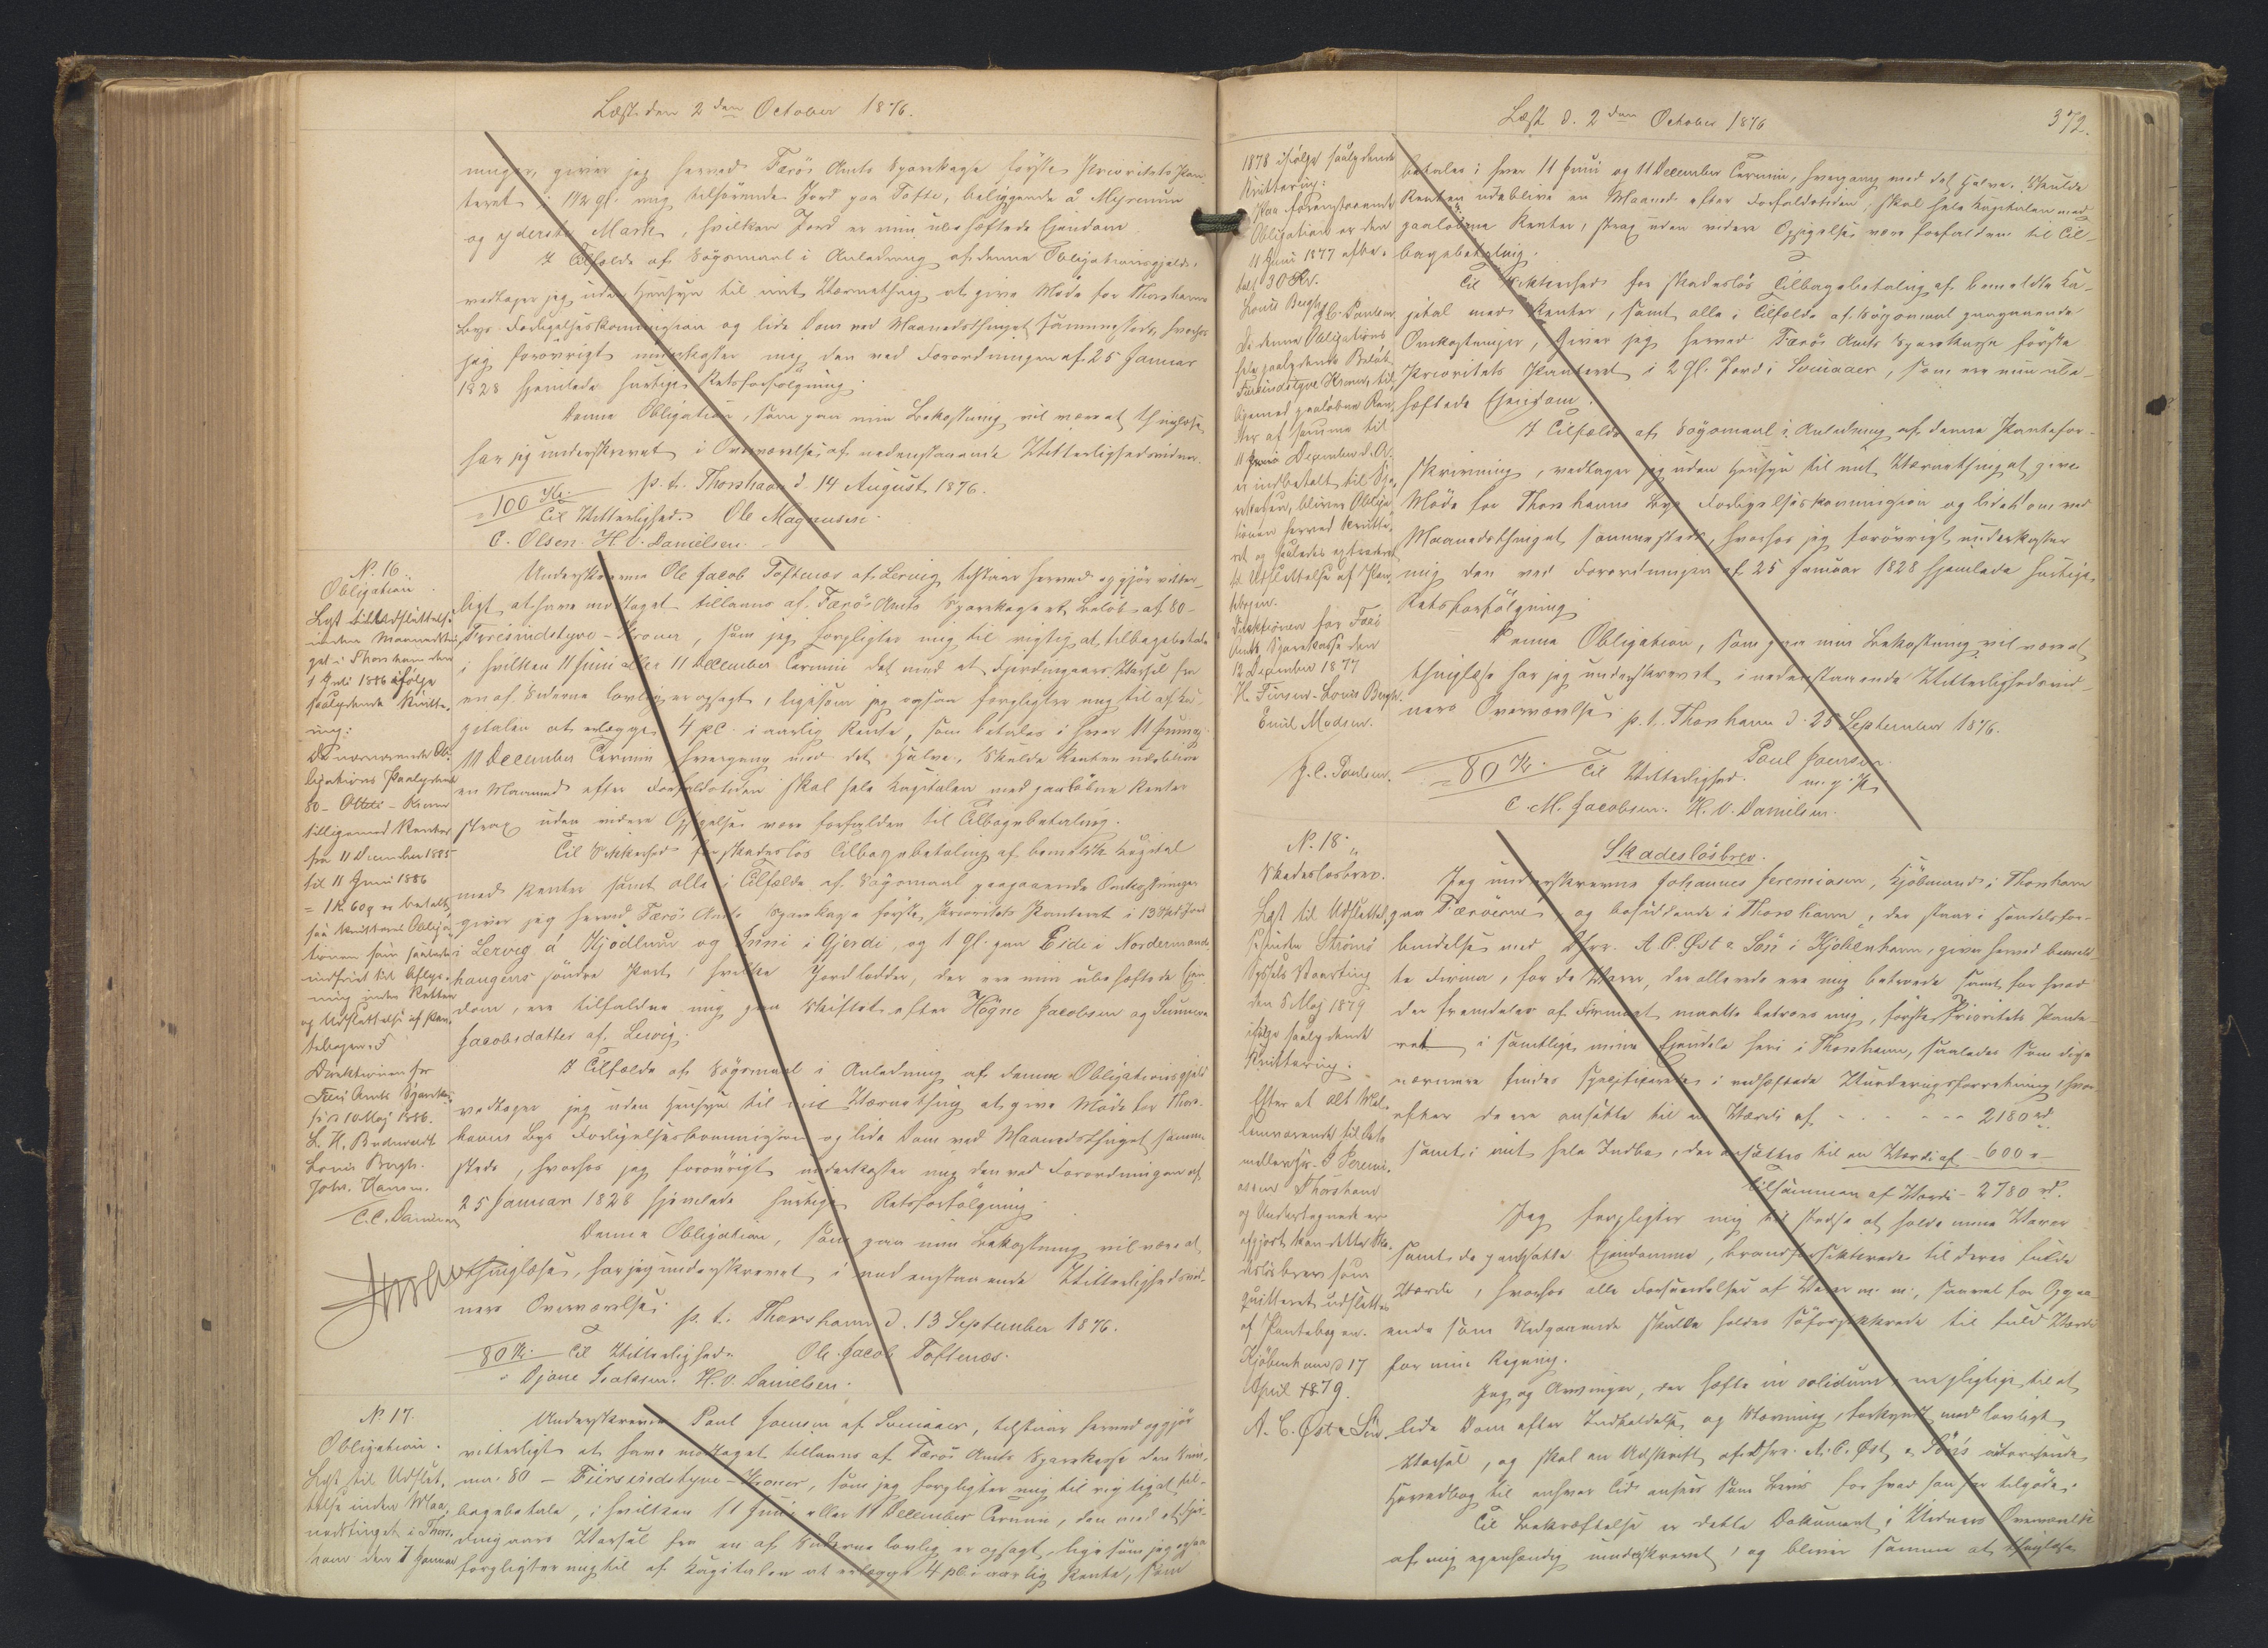 Læst den 2den October 1876.
ninger, giver jeg herved Færø Amts Sparekasse første Prioritets Pan-
teret i 1½ gl. mig tilhørende Jord paa Tofte, beliggende á Myrenum
og yderste Mark, hvilken Jord er min ubehæftede Ejendom.
I Tilfælde af Søgsmaal i Anledning af denne Obligationsgjeld,
vedtager jeg uden Hensyn til mit Værnething at give Møde for Thorshavns
Byes Forligelseskommission og lide Dom ved Maanedsthinget sammesteds, hvorhos
jeg forøvrigt underkaster mig den ved Forordningen af 25 Januar
1828 hjemlede hurtige Retsforfølgning.
Denne Obligation, som paa min Bekostning vil være at thinglæse,
har jeg underskrevet i Overværelse af nedenstaaende Vitterlighedsvidner.
p. t. Thorshavn d. 14 August 1876.
100 Kr.
Til Vitterlighed. Ole Magnussen.
C. Olsen. H. O. Danielsen.
No. 16.
Obligation.
Læst til Udslettelse
inden Maanedsthin-
get i Thorshavn den
1 Juli 1886 ifølge
saalydende Kvitte-
ring:
Da nærværende Ob-
ligations Paalydende
80 - Otteti - Kroner
tilligemed Renter
fra 11 December 1885
til 11 Juni 1886
= 1 Kr 60 ø er betalt,
saa kvitteres Obliga-
tionen som saaledes
indfriet til Aflys-
ning inden Retten
og Udslettelse af Pan-
tebogen.
Direktionen for
Færø Amts Sparekas-
se d 10 Maj 1886.
L. H. Bredesdt
Louis Bergh.
Johs. Hansen.
C. C. Danielsen
Underskrevne Ole Jacob Toftenæs af Lervig tilstaar herved og gjør vitter-
ligt at have modtaget tillaans af Færø Amts Sparekasse et Beløb af 80 -
Firesindstyve - Kroner, som jeg forpligter mig til rigtig at tilbagebetale
i hvilken 11 Juni eller 11 December Termin det med et Fjerdingaars Varsel fra
en af Siderne lovlig er opsagt, ligesom jeg ogsaa forpligter mig til af Ka-
pitalen at erlægge 4 pC. i aarlig Rente, som betales i hver 11 Juni og
11 December Termin, hvergang med det Halve. Skulde Renten udeblive
en Maaned efter Forfaldstiden skal hele Kapitalen med paaløbne Renter
strax uden videre Opsigelse være forfalden til Tilbagebetaling.
Til Sikkerhed for skadesløs Tilbagebetaling af bemeldte Kapital
med Renter samt alle i Tilfælde af Søgsmaal paagaaende Omkostninger
giver jeg herved Færø Amts Sparekasse første Prioritets Panteret i 13 Skd Jord
i Lervig á Hjödlum og Inni i Gjerdi, og 1 Gl. paa Eide i Nordermands
haugens søndre Part, hvilke Jordlodder, der ere min ubehæftede Ejen-
dom, ere tilfaldne mig paa Skiftet efter Högne Jacobsen og Sunneva
Jacobsdatter af Lervig.
I Tilfælde af Søgsmaal i Anledning af denne Obligationsgjeld
vedtager jeg uden Hensyn til mit Værnething at give Møde for Thors-
havns Byes Forligelseskommission og lide Dom ved Maanedsthinget samme-
steds, hvorhos jeg forøvrigt underkaster mig den ved Forordningen af
25 Januar 1828 hjemlede hurtige Retsforfølgning.
Denne Obligation, som paa min Bekostning vil være at
thinglæse, har jeg underskrevet i nedenstaaende Vitterlighedsvid-
ners Overværelse.
p. t. Thorshavn d. 13 September 1876.
80 Kr. Til Vitterlighed. Ole Jacob Toftenæs.
Djone Isaksen. H. O. Danielsen.
No 17.
Obligation.
Læst til Udslet-
telse inden Maa-
nedstinget i Thors-
havn den 7 Januar
Underskrevne Poul Joensen af Sumaaer, tilstaar herved og gjør
vitterligt at have modtaget tillaans af Færø Amts Sparekasse den Sum-
ma 80 - Fiirsindstyve - Kroner, som jeg forpligter mig til rigtigt at til-
bagebetale, i hvilken 11 Juni eller 11 December Termin, den med et Fjer-
dingaars Varsel fra en af Siderne lovlig er opsagt, ligesom jeg ogsaa
forpligter mig til af Kapitalen at erlægge 4 pC. i aarlig Rente, som
Læst d. 2den October 1876
372.
1878 ifølge saalydende
Kvittering:
Paa foranstaaende
Obligation er den
11 Juni 1877 afbe-
talt 30 Kr.
Louis Bergh. J. C. Poulsen.
Da denne Obligations
hele paalydende Beløb
Firsindstyve Kroner til-
ligemed paaløbne Ren-
ter af samme til
11 December d. A.
er indbetalt til Spa-
rekassen, bliver Obliga-
tionen herved kvitte-
ret og saaledes extraderet
til Udslettelse af Pan-
tebogen.
Direktionen for Færø
Amts Sparekasse den
12 December 1877
H. Finsen. Louis Bergh.
Emil Madsen.
J. C. Poulsen.
betales i hver 11 Juni og 11 December Termin, hvergang med det Halve. Skulde
Renten udeblive en Maaned efter Forfaldstiden, skal hele Kapitalen med
paaløbne Renter, strax uden videre Opsigelse være forfalden til Til-
bagebetaling.
Til Sikkerhed for skadesløs Tilbagebetaling af bemeldte Ka-
pital med Renter, samt alle i Tilfælde af Søgsmaal paagaaende
Omkostninger, giver jeg herved Færø Amts Sparekasse første
Prioritets Panteret i 2 Gl. Jord i Sumaaer, som ere min ube-
hæftede Ejendom.
I Tilfælde af Søgsmaal i Anledning af denne Pantefor-
skrivning, vedtager jeg uden Hensyn til mit Værnething at give
Møde for Thorshavns Byes Forligelseskommission og lide Dom ved
Maanedsthinget sammesteds, hvorhos jeg forøvrigt underkaster
mig den ved Forordningen af 25 Januar 1828 hjemlede hurtige
Retsforfølgning.
Denne Obligation, som paa min Bekostning vil være at
thinglæse har jeg underskrevet i nedenstaaende Vitterlighedsvid-
ners Overværelse. p. t. Thorshavn d. 25 September 1876.
80 Kr. Til Vitterlighed. Poul Joensen
m. p. P.
C. M. Jacobsen. H. O. Danielsen.
No. 18.
Skadesløsbrev.
Læst til Udslettel-
se inden Strømø
Syssels Vaarting
den 5 Maj 1879
ifølge saalydende
Kvittering.
Efter at alt Mel-
lemværende
mellem Hr. J. Jeremi-
asen Thorshavn
og Undertegnede er
afgjort kan dette Ska-
desløsbrev som
quitteret udslettes
af Pantebogen.
Kjøbenhavn d 17
April 1879.
A. C. Øst & Søn
Skadesløsbrev.
Jeg underskrevne Johannes Jeremiasen, Kjøbmand i Thorshavn
paa Færøerne, og bosiddende i Thorshavn, der staar i Handelsfor-
bindelse med Dhrr. A. C. Øst & Søn i Kjøbenhavn, giver herved bemeld-
te Firma, for de Varer, der allerede ere mig betroede samt for hvad
der fremdeles af Firmaet maatte betroes mig, første Prioritets Pante-
ret i samtlige mine Ejendele her i Thorshavn, saaledes som disse
nærmere findes specificerede i vedhæftede Vurderingsforretning, hvor-
efter de ere ansatte til en Værdi af - - - - - 2180 rd.
samt i mit hele Indbo, der ansættes til en Værdi af - 600 " -
tilsammen af Værdi - 2780 rd.
Jeg forpligter mig til stedse at holde mine Varer
samt de pantsatte Ejendomme, brandforsikkrede til deres fulde
Værdi, hvorhos alle Forsendelser af Varer m. m., saavel for Opgaa-
ende som Nedgaaende skulle holdes søforsikkrede til fuld Værdi
for min Regning.
Jeg og Arvinger, der hæfte in solidum, ere pligtige til at
lide Dom efter Indkaldelse og Stævning, forkyndt med lovligt
Varsel, og skal en Udskrift af Dhrr. A. C. Øst & Søns autoriserede
Hovedbog til enhver Tid ansees som Beviis for hvad han har tilgode.
Til Bekræftelse er dette Dokument i Vidners Overværelse
af mig egenhændig underskrevet, og bliver samme at thinglæse